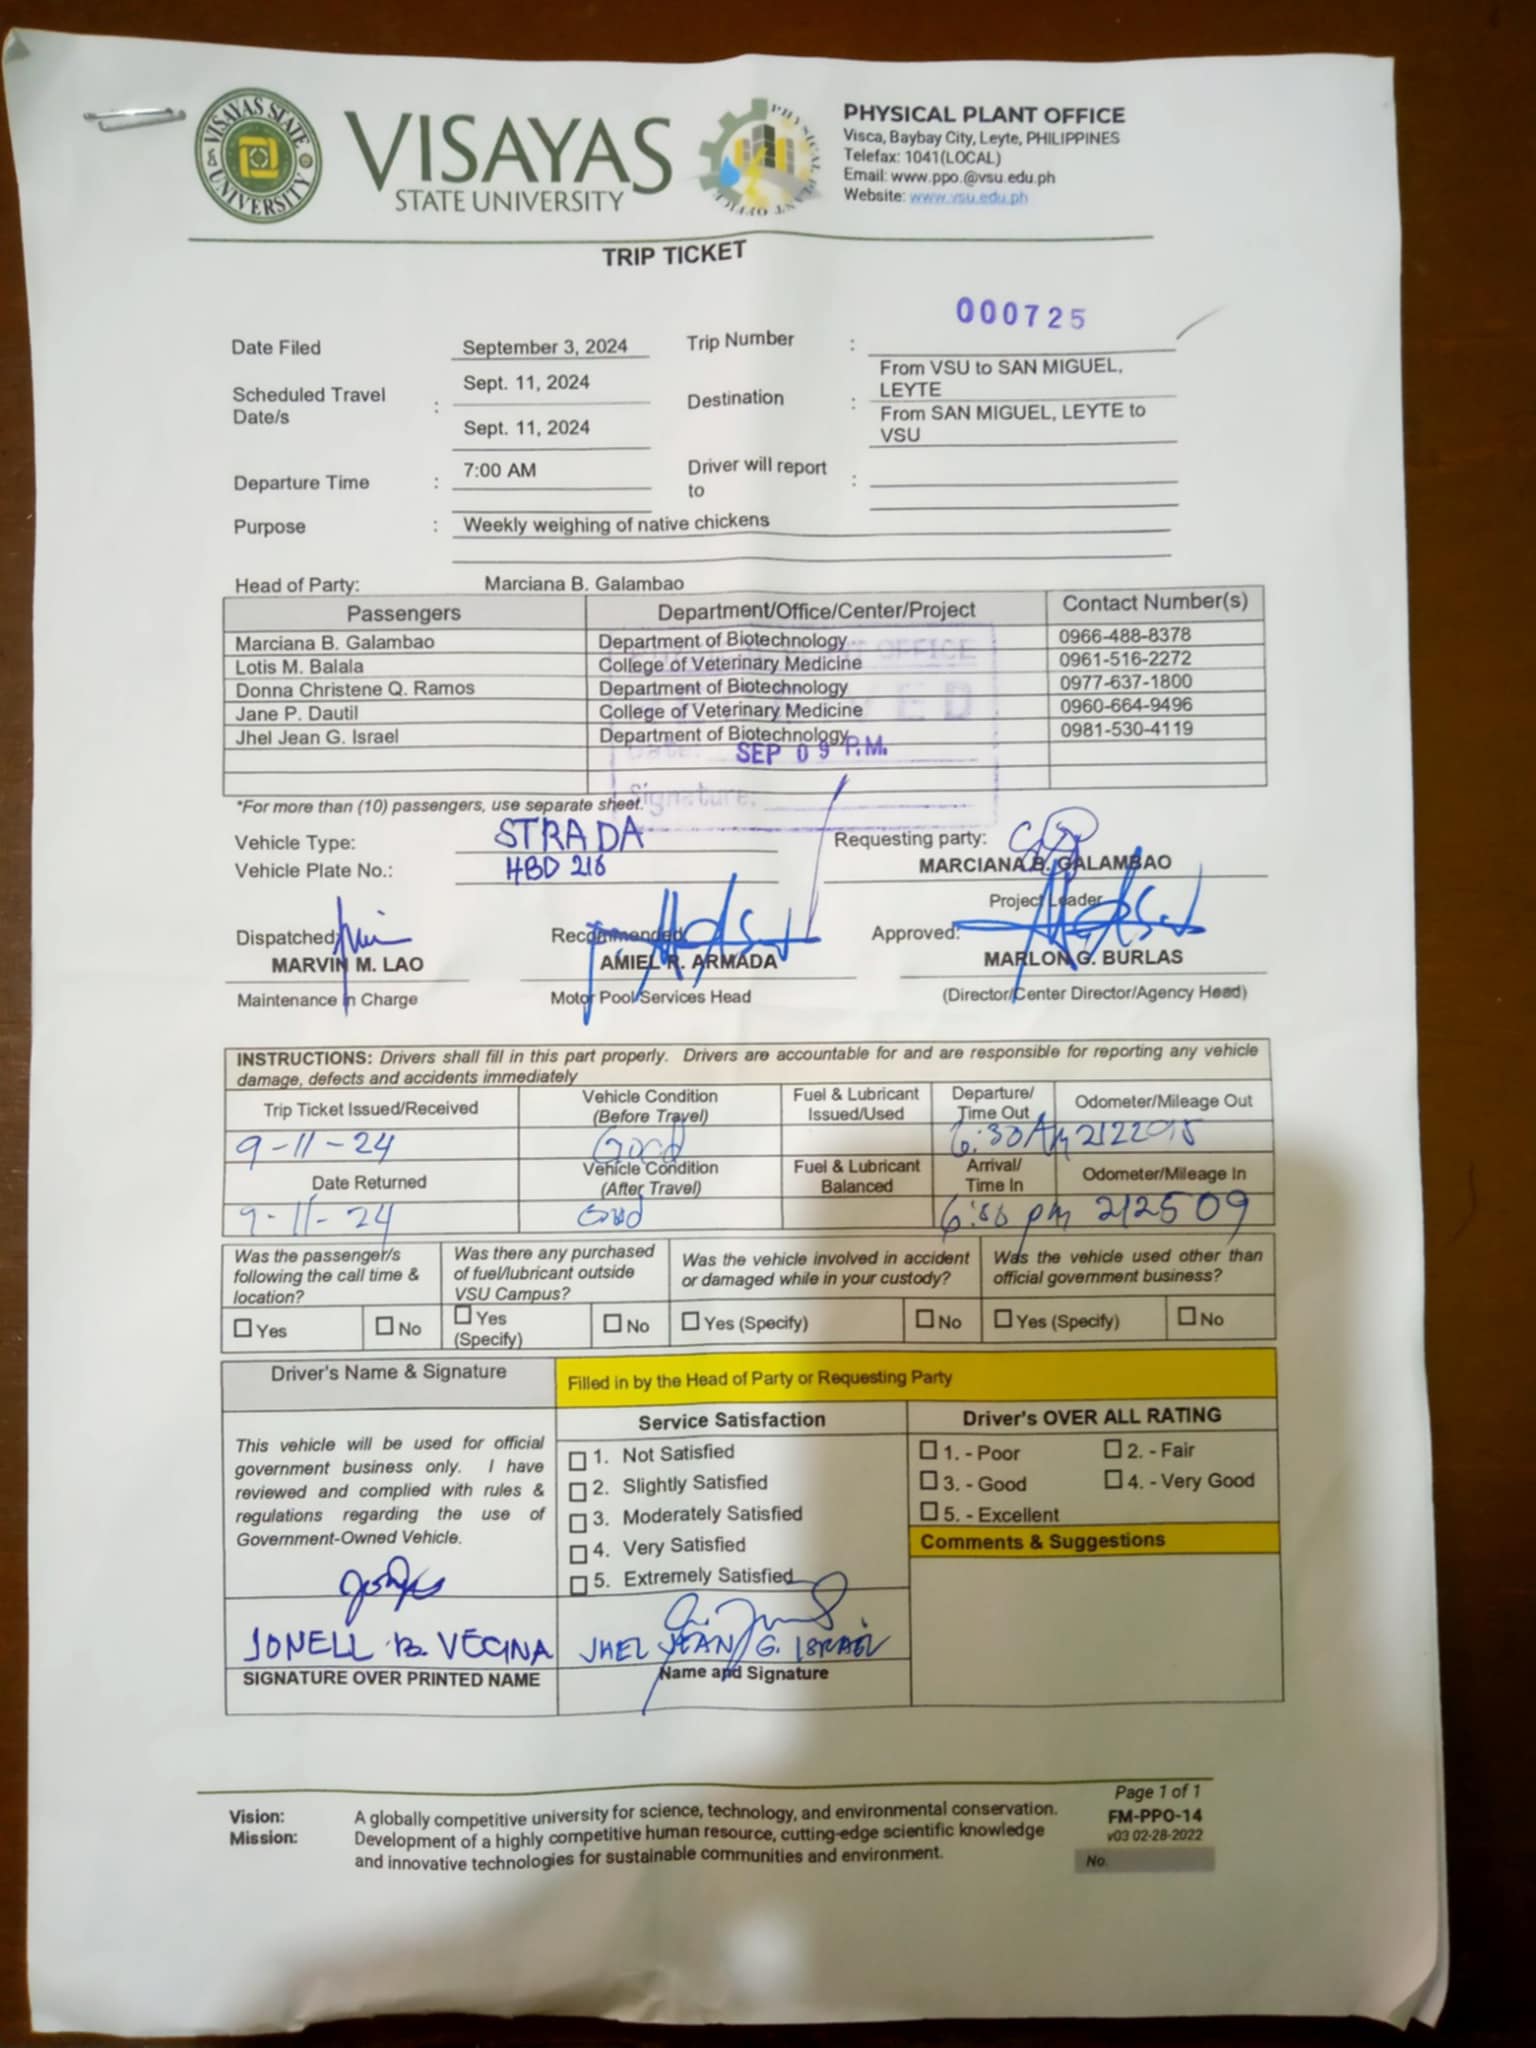 VISAYAS STATE UNIVERSITY
VISAYAS
STATE UNIVERSITY
PHYSICAL PLANT OFFICE
PHYSICAL PLANT OFFICE
Visca, Baybay City, Leyte, PHILIPPINES
Telefax: 1041(LOCAL)
Email: www.ppo.@vsu.edu.ph
Website: www.vsu.edu.ph
TRIP TICKET
000725
Date Filed September 3, 2024 Trip Number :
Scheduled Travel Date/s : Sept. 11, 2024 Destination : From VSU to SAN MIGUEL, LEYTE
Sept. 11, 2024 From SAN MIGUEL, LEYTE to VSU
Departure Time : 7:00 AM Driver will report to :
Purpose : Weekly weighing of native chickens
Head of Party: Marciana B. Galambao
Passengers Department/Office/Center/Project Contact Number(s)
Marciana B. Galambao Department of Biotechnology 0966-488-8378
Lotis M. Balala College of Veterinary Medicine 0961-516-2272
Donna Christene Q. Ramos Department of Biotechnology 0977-637-1800
Jane P. Dautil College of Veterinary Medicine 0960-664-9496
Jhel Jean G. Israel Department of Biotechnology 0981-530-4119
OFFICE
Date: SEP 09 P.M.
Signature:
*For more than (10) passengers, use separate sheet.
Vehicle Type: STRADA Requesting party:
Vehicle Plate No.: HBD 216 MARCIANA B. GALAMBAO
Project Leader
Dispatched: Recommended: Approved:
MARVIN M. LAO AMIEL R. ARMADA MARLON G. BURLAS
Maintenance in Charge Motor Pool Services Head (Director/Center Director/Agency Head)
INSTRUCTIONS: Drivers shall fill in this part properly. Drivers are accountable for and are responsible for reporting any vehicle
damage, defects and accidents immediately
Trip Ticket Issued/Received Vehicle Condition (Before Travel) Fuel & Lubricant Issued/Used Departure/ Time Out Odometer/Mileage Out
9-11-24 Good 6:30 AM
Date Returned Vehicle Condition (After Travel) Fuel & Lubricant Balanced Arrival/ Time In Odometer/Mileage In
9-11-24 Good pm 212509
Was the passenger/s following the call time & location? Was there any purchased of fuel/lubricant outside VSU Campus? Was the vehicle involved in accident or damaged while in your custody? Was the vehicle used other than official government business?
Yes No Yes (Specify) No Yes (Specify) No Yes (Specify) No
Driver's Name & Signature Filled in by the Head of Party or Requesting Party
Service Satisfaction Driver's OVER ALL RATING
This vehicle will be used for official
government business only. I have
reviewed and complied with rules &
regulations regarding the use of
Government-Owned Vehicle.
1. Not Satisfied
2. Slightly Satisfied
3. Moderately Satisfied
4. Very Satisfied
5. Extremely Satisfied
1. - Poor 2. - Fair
3. - Good 4. - Very Good
5. - Excellent
Comments & Suggestions
JONELL B. VECINA JHEL JEAN G. ISRAEL
SIGNATURE OVER PRINTED NAME Name and Signature
Page 1 of 1
Vision: A globally competitive university for science, technology, and environmental conservation. FM-PPO-14
Mission: Development of a highly competitive human resource, cutting-edge scientific knowledge v03 02-28-2022
and innovative technologies for sustainable communities and environment. No.